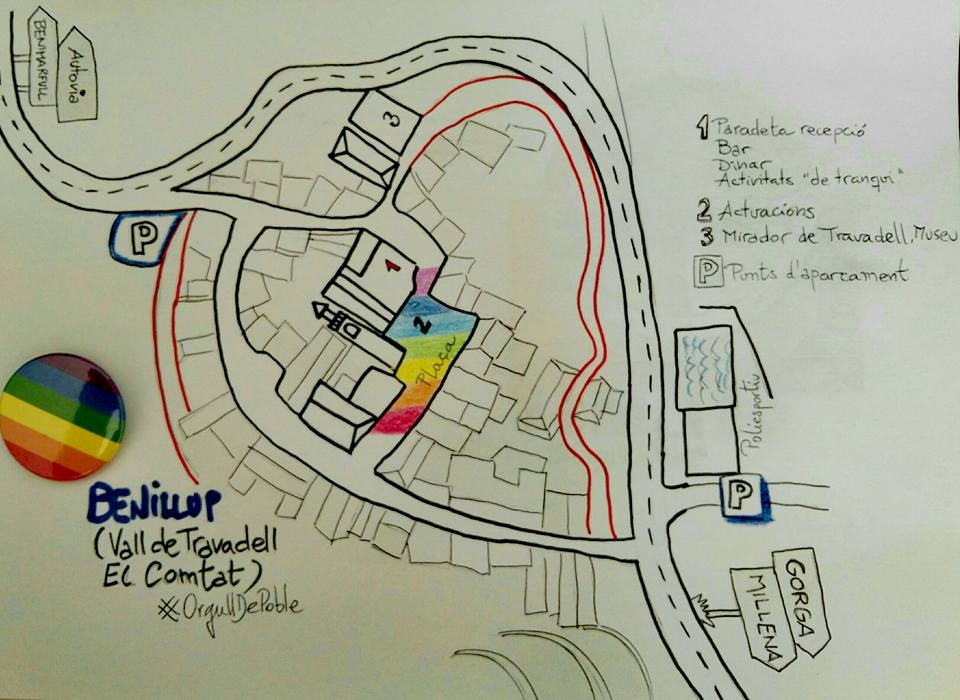 BENIMARFULL
Autovia
3
1 Paradeta recepció
Bar
Dinar
Activitats "de tranqui"
2 Actuacions
3 Mirador de Travadell, Museu
P Punts d'aparcament
P
1
2
Plaça
Poliesportiu
P
BENILLUP
(Vall de Travadell
El Comtat)
#OrgullDePoble
GORGA
MILLENA